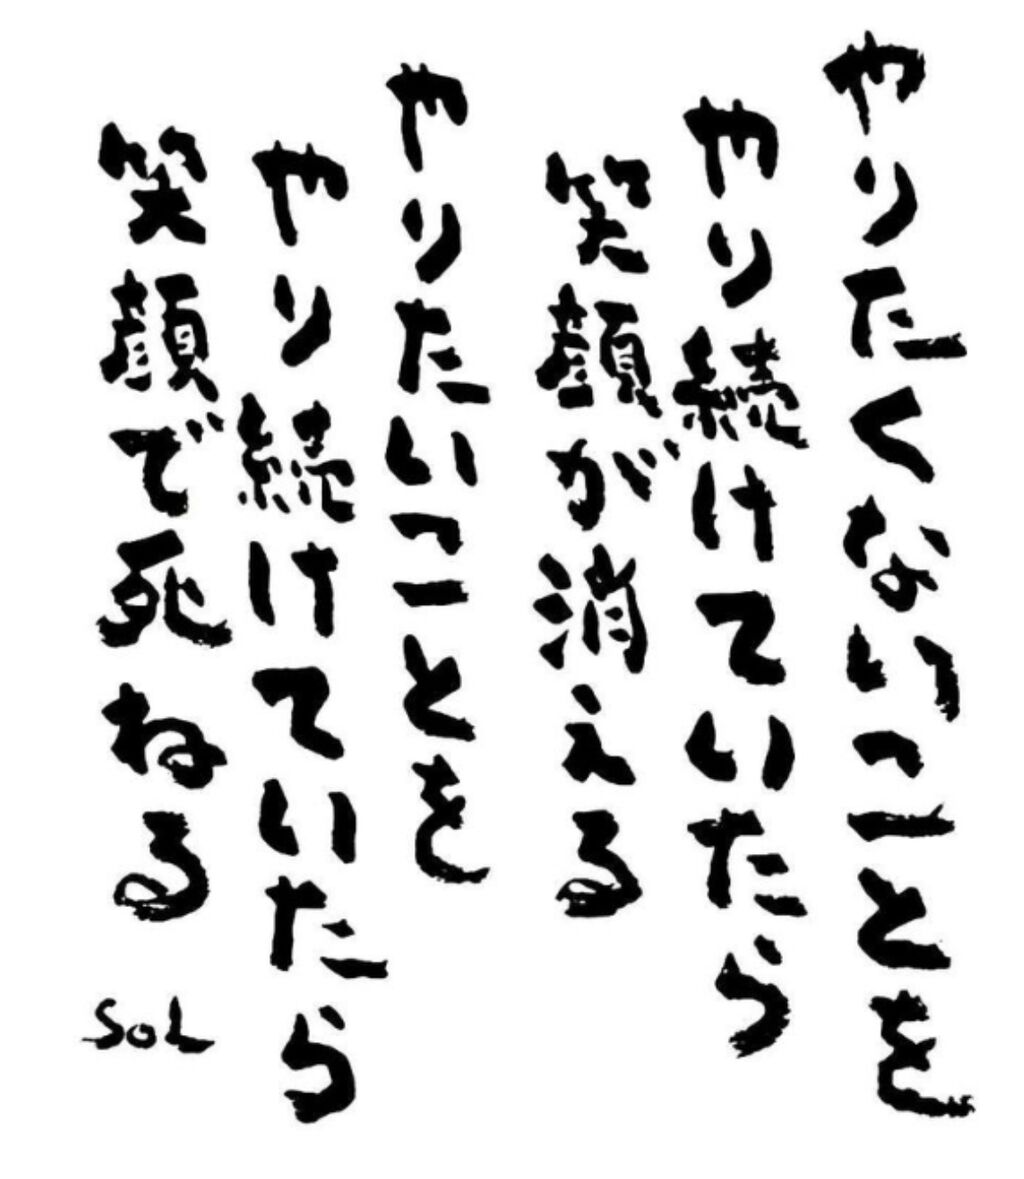 やりたくないことを
やり続けていたら
笑顔が消える
やりたいことを
やり続けていたら
笑顔で死ねる
SoL